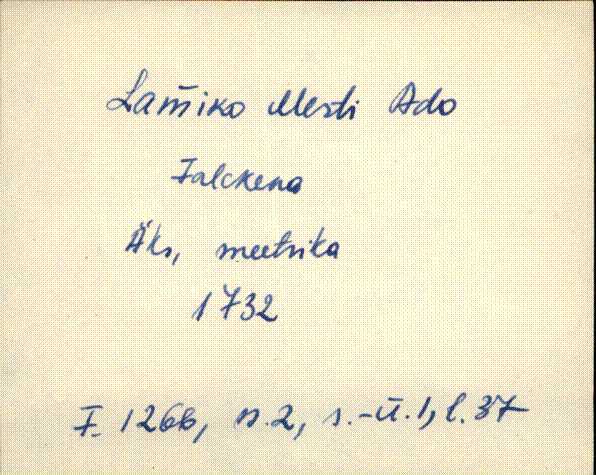 Lam̄iko Mesti Ado
Falckena
Äks, meetrika
1732
F. 1266, n. 2, s.-ü. 1, l. 37